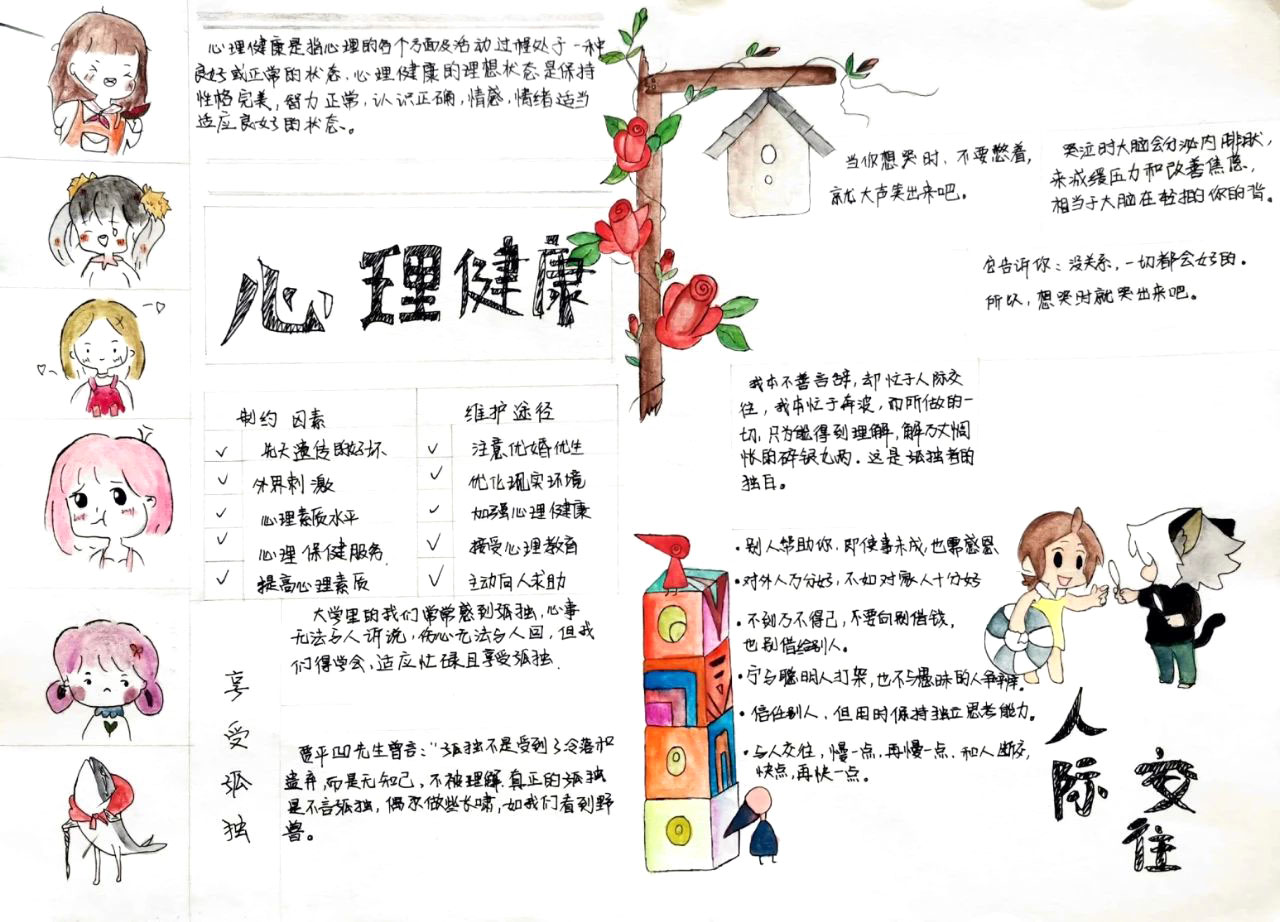 心理健康是指心理的各个方面及活动过程处于一种
良好或正常的状态.心理健康的理想状态是保持
性格完美,智力正常,认识正确,情感,情绪适当
适应良好的状态。
心理健康
制约因素
先天遗传的好坏
外界刺激
心理素质水平
心理保健服务
提高心理素质
维护途径
注意优婚优生
优化现实环境
加强心理健康
接受心理教育
主动向人求助
享受孤独
大学里的我们常常感到孤独,心事
无法与人诉说,伤心无法与人回,但我
们得学会,适应忙碌且享受孤独.
贾平凹先生曾言:"孤独不是受到了冷落和
遗弃,而是无知己,不被理解.真正的孤独
是不言孤独,偶尔做些长啸,如我们看到野
兽。
当你想哭时,不要憋着,
就大声哭出来吧。
哭泣时大脑会分泌内啡肽,
来减缓压力和改善焦虑,
相当于大脑在轻拍的你的背。
它告诉你:没关系,一切都会好的.
所以,想哭时就哭出来吧。
我本不善言辞,却忙于人际交
往,我本忙于奔波,而所做的一
切,只为能得到理解,解万丈惆
怅的碎银九两.这是孤独者的
独白.
•别人帮助你,即使事未成,也需感恩
•对外人万分好,不如对家人十分好
•不到万不得已,不要向别借钱,
也别借给别人。
•宁与聪明人打架,也不与愚昧的人争辩.
•信任别人,但用时保持独立思考能力.
•与人交往,慢一点,再慢一点.和人断交,
快点,再快一点.
人际
交往